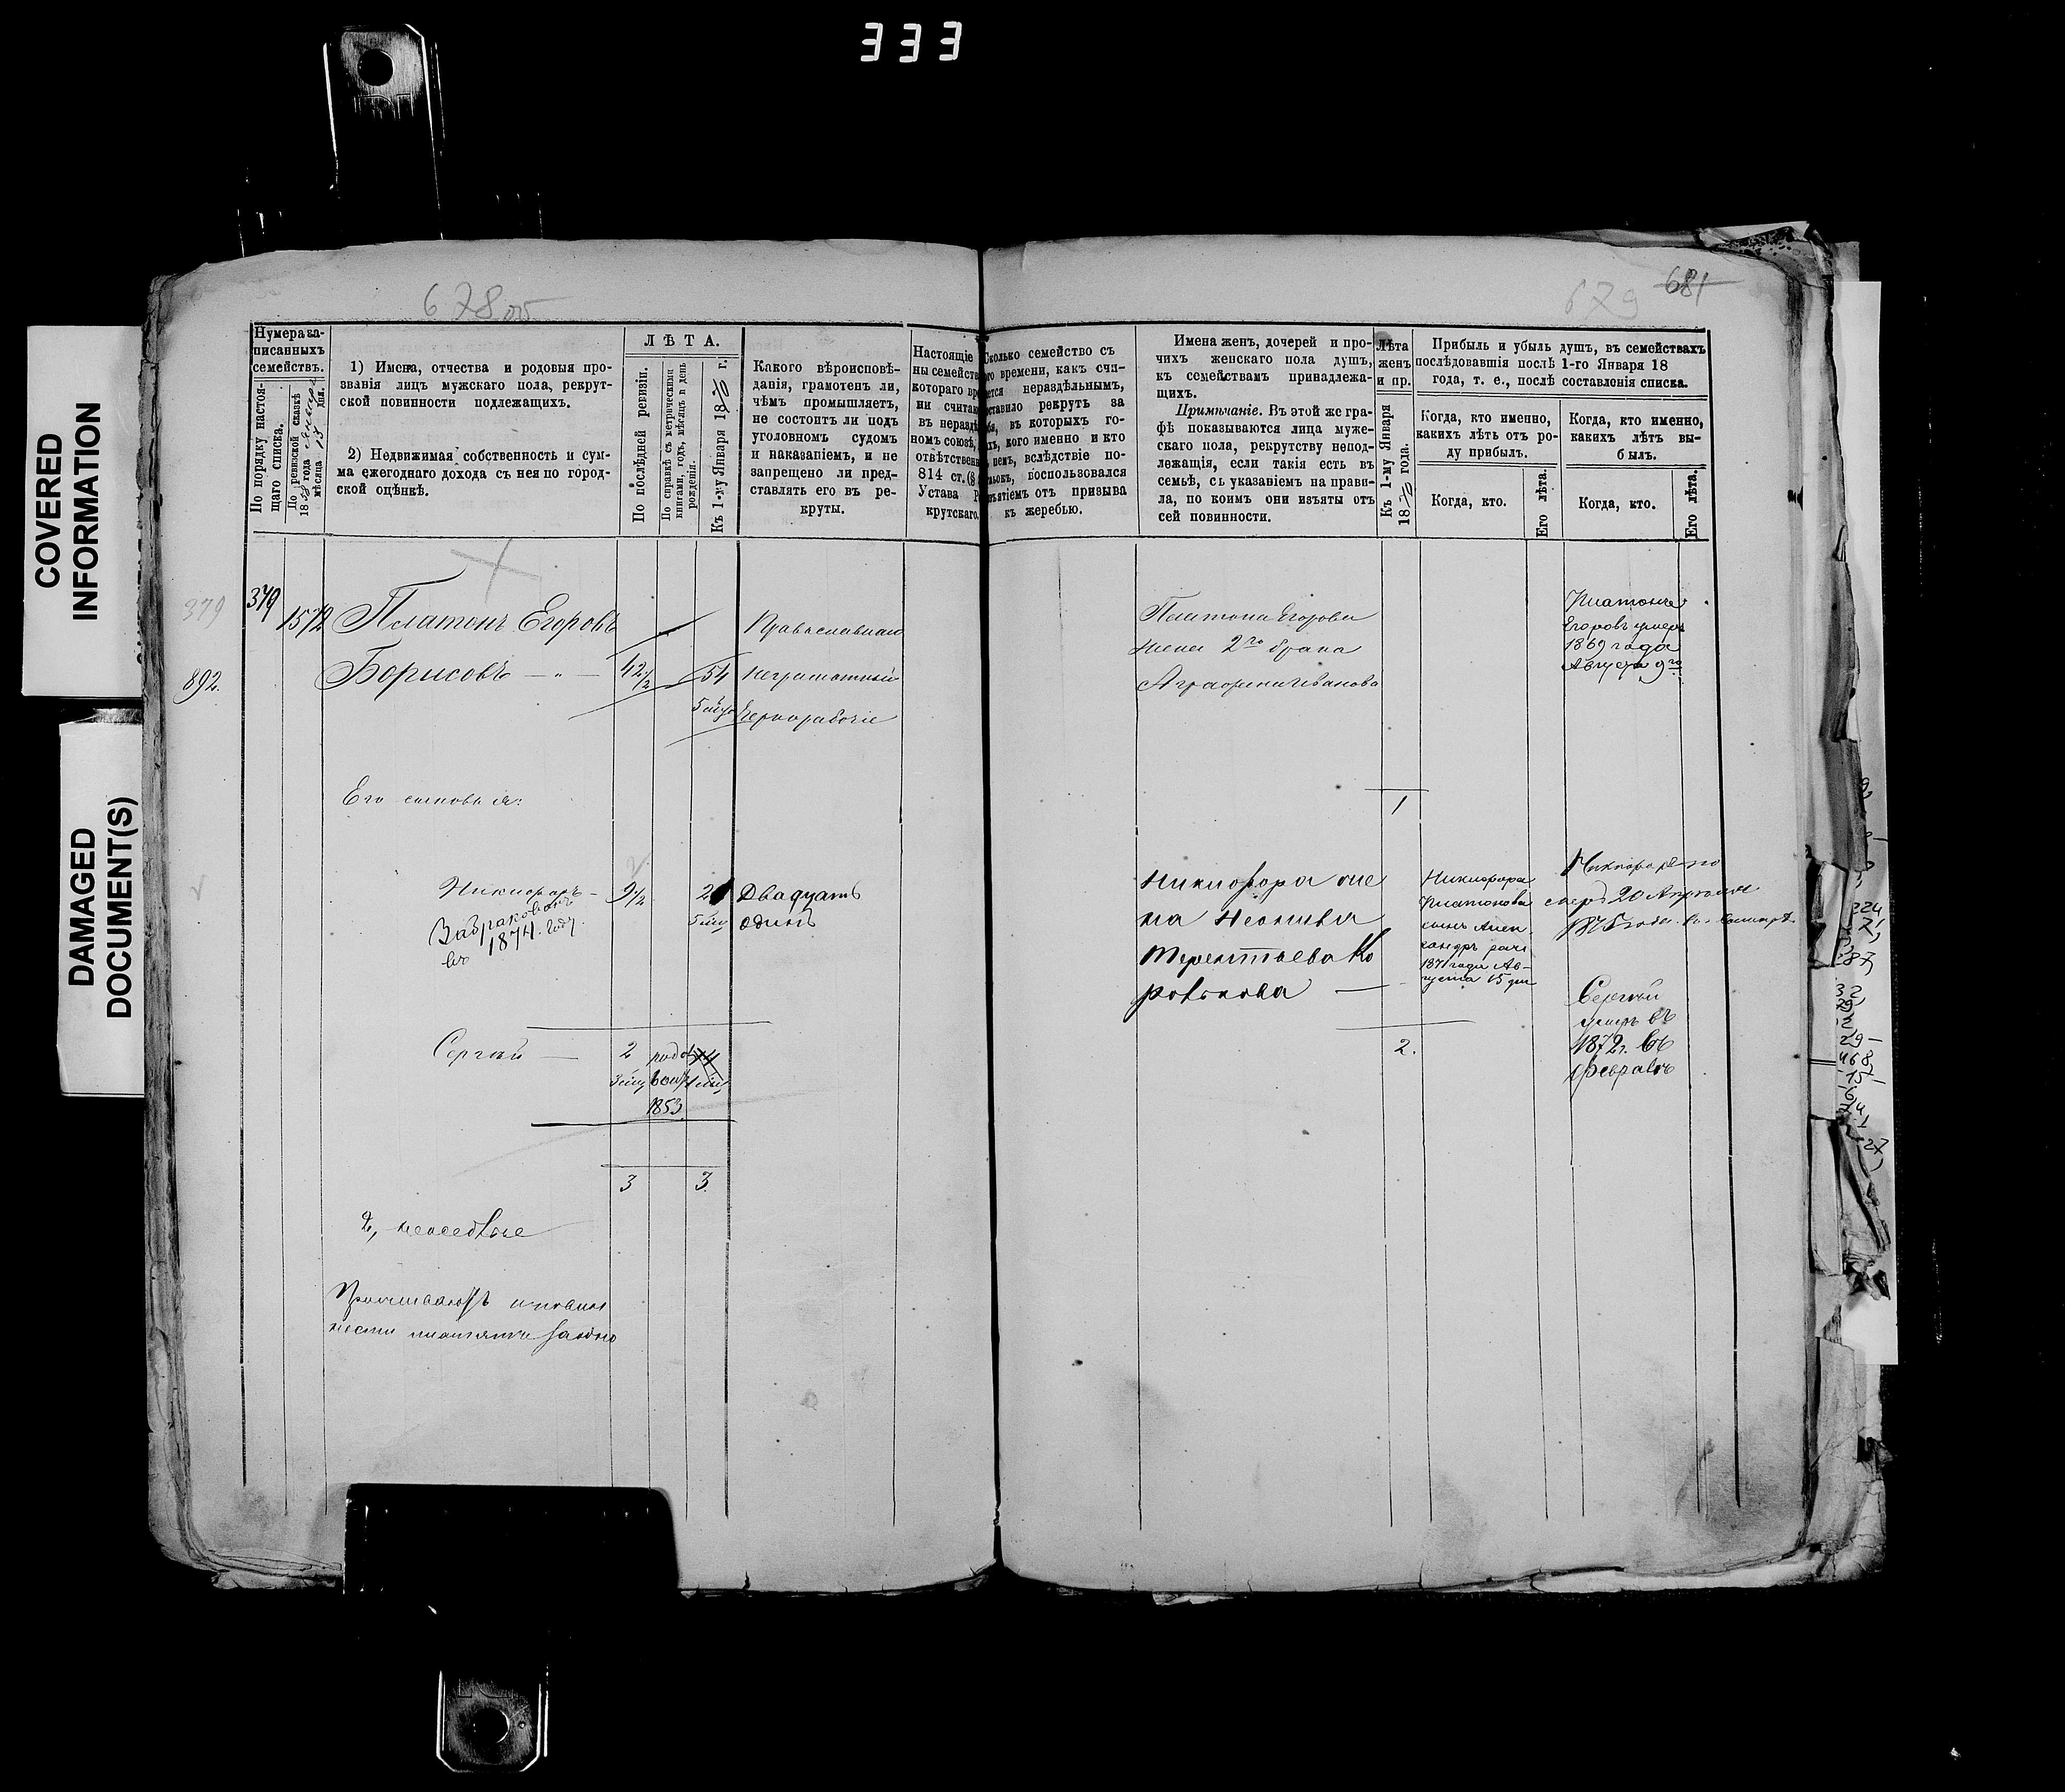 333
COVERED
INFORMATION
DAMAGED
DOCUMENT(S)
678 об
679
681
Нумера за-
писанныхъ
семействъ.
По порядку настоя-
щаго списка.
По ревизской сказкѣ
1858 года
мѣсяца 15 дня.
1) Имена, отчества и родовыя про-
званія лицъ мужскаго пола, рекрут-
ской повинности подлежащихъ.
2) Недвижимая собственность и сум-
ма ежегоднаго дохода съ нея по город-
ской оцѣнкѣ.
ЛѢТА.
По послѣдней ревизіи.
По справкѣ съ метрическими
книгами, годъ, мѣсяцъ и день
рожденія.
Къ 1-му Января 1870 г.
Какого вѣроисповѣ-
данія, грамотенъ ли,
чѣмъ промышляетъ,
не состоитъ ли подъ
уголовномъ судомъ
и наказаніемъ, и не
запрещено ли пред-
ставлять его въ ре-
круты.
Настоящіе
ны семейств
котораго вре
ни считаю
въ неразд
номъ союзѣ,
отвѣтствен
814 ст. (§
Устава Р
крутскаго.
Сколько семейство съ
го времени, какъ счи-
ется нераздѣльнымъ,
оставило рекрутъ за
бя, въ которыхъ го-
хъ, кого именно и кто
немъ, вслѣдствіе по-
ыокъ, воспользовался
ъятіемъ отъ призыва
къ жеребью.
Имена женъ, дочерей и про-
чихъ женскаго пола душъ,
къ семействамъ принадлежа-
щихъ.
Примѣчаніе. Въ этой же гра-
фѣ показываются лица муже-
скаго пола, рекрутству непод-
лежащія, если такія есть въ
семьѣ, съ указаніемъ на прави-
ла, по коимъ они изъяты отъ
сей повинности.
Лѣта
женъ
и пр.
Къ 1-му Января
1870 года.
Прибыль и убыль душъ, въ семействахъ
послѣдовавшія послѣ 1-го Января 18
года, т. е., послѣ составленія списка.
Когда, кто именно,
какихъ лѣтъ отъ ро-
ду прибылъ.
Когда, кто именно,
какихъ лѣтъ вы-
былъ.
Когда, кто.
Его лѣта.
Когда, кто.
Его лѣта.
379
892.
379
1572
Платонъ Егоровъ
Борисовъ — „ —
42 1/2
54
5 мѣц
Православнаго
неграмотный
чернорабочіе
Платона Егорова
жена 2го брака
Аграфена Иванова
1
Платонъ
Егоровъ умеръ
1869 года
Августа 9го
Его сыновья:
Никифоръ —
Забракованъ
въ 1874 году.
9 1/2
21
5 мѣц
Двадцать
одинъ
Никифора же
на Неонила
Терентьева Ко
ровякова —
2.
Никифора
Платонова
сынъ Алек
сандръ род:
1871 года Ав-
густа 15 дня
Никифоръ по
меръ 20 Апрѣля
1875 года
Сергѣй —
2
3 мѣц
родо
1853
Сергѣй
умеръ въ
1872 г. въ
Февралѣ
3
3.
2, неосѣдлые
Проживаютъ и повин
ности платятъ